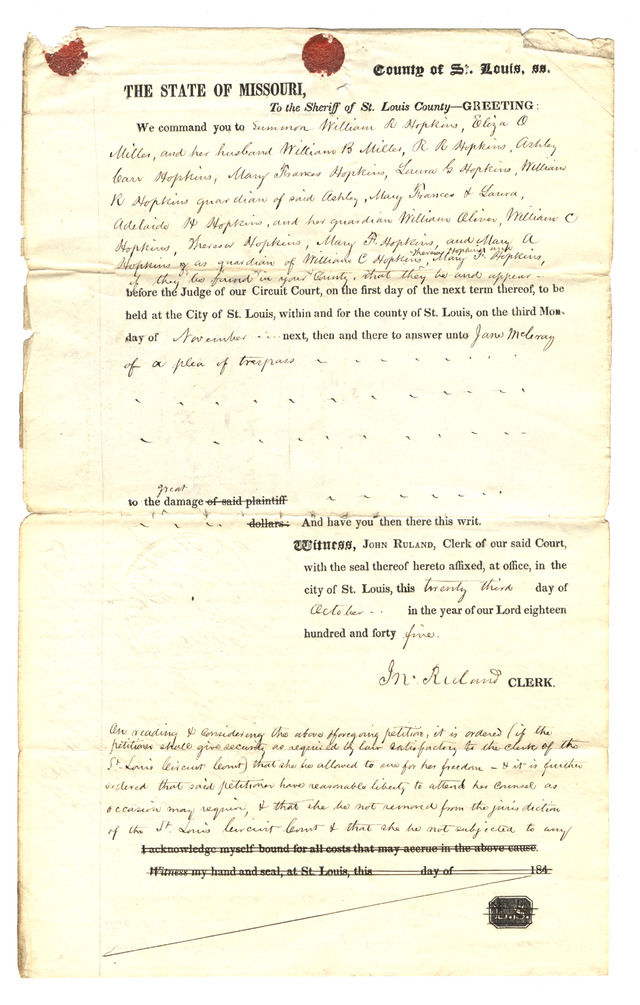 County of St. Louis, ss.
THE STATE OF MISSOURI,
To the Sheriff of St. Louis County—GREETING:
We command you to Summon William R Hopkins, Eliza O
Miller, and her husband William B Miller, R R Hopkins, Ashley
Carr Hopkins, Mary Frances Hopkins, Laura G Hopkins, William
R Hopkins guardian of said Ashley, Mary Frances & Laura,
Adelaide H Hopkins, and her guardian William Oliver, William C
Hopkins, Theresa Hopkins, Mary F. Hopkins, and Mary A
Theresa Hopkins and
Hopkins & as guardian of William C Hopkins, Mary F. Hopkins,
if they be found in your County, that they be and appear
before the Judge of our Circuit Court, on the first day of the next term thereof, to be
held at the City of St. Louis, within and for the county of St. Louis, on the third Mon-
day of November next, then and there to answer unto Jane McCray
of a plea of trespass
great
to the damage of said plaintiff
dollars: And have you then there this writ.
Witness, JOHN RULAND, Clerk of our said Court,
with the seal thereof hereto affixed, at office, in the
city of St. Louis, this twenty third day of
October in the year of our Lord eighteen
hundred and forty five.
Jno. Ruland CLERK.
On reading & considering the above & foregoing petition, it is ordered (if the
petitioner shall give security as required by law satisfactory to the clerk of the
St. Louis Circuit Court) that she be allowed to sue for her freedom - & it is further
ordered that said petitioner have reasonable liberty to attend her counsel as
occasion may require, & that she be not removed from the jurisdiction
of the St. Louis Circuit Court & that she be not subjected to any
I acknowledge myself bound for all costs that may accrue in the above cause.
Witness my hand and seal, at St. Louis, this day of 184
L.S.